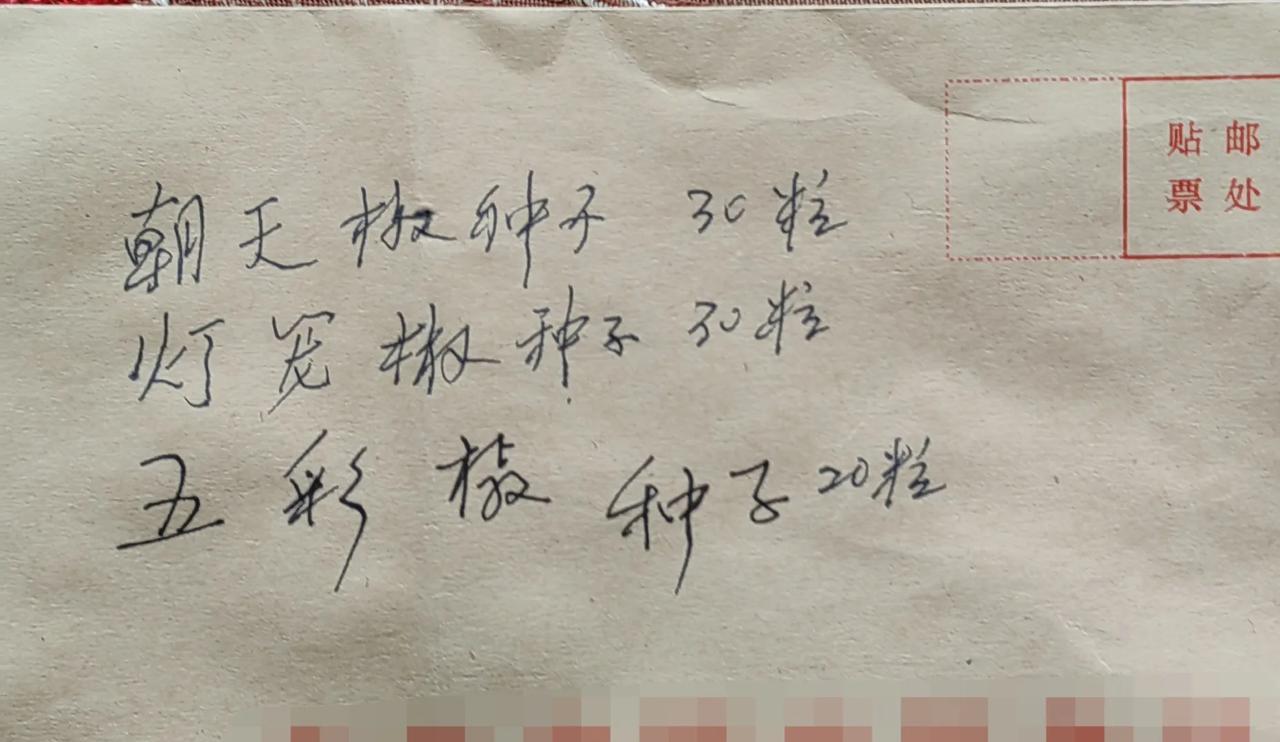 贴邮
票处
朝天椒种子 30粒
灯笼椒种子 30粒
五彩椒种子 20粒